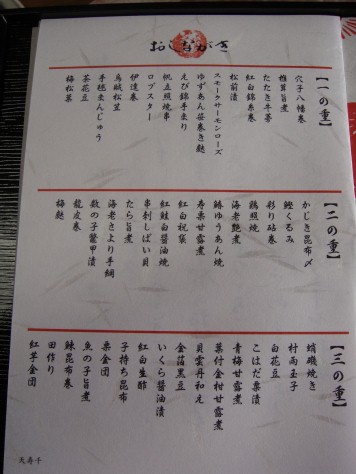 おしながき
【一の重】
穴子八幡巻
椎茸旨煮
たたき牛蒡
紅白錦糸巻
松前漬
スモークサーモンローズ
ゆずあん笹巻き麩
えび錦手まり
帆立照焼串
ロブスター
伊達巻
烏賊松笠
手毬まんじゅう
茶花豆
梅松葉
【二の重】
かじき昆布〆
鰹くるみ
彩り砧巻
鶏照焼
海老艶煮
鰆ゆうあん焼
寿栗甘露煮
紅白祝袋
紅鮭白醤油焼
串刺しばい貝
たら旨煮
海老さより手綱
数の子鼈甲漬
龍皮巻
梅麩
【三の重】
蛸磯焼き
村雨玉子
白花豆
こはだ粟漬
青梅甘露煮
葉付金柑甘露煮
貝雲丹和え
金箔黒豆
いくら醤油漬
紅白生酢
子持ち昆布
栗金団
魚の子旨煮
鰊昆布巻
田作り
紅芋金団
天寿千